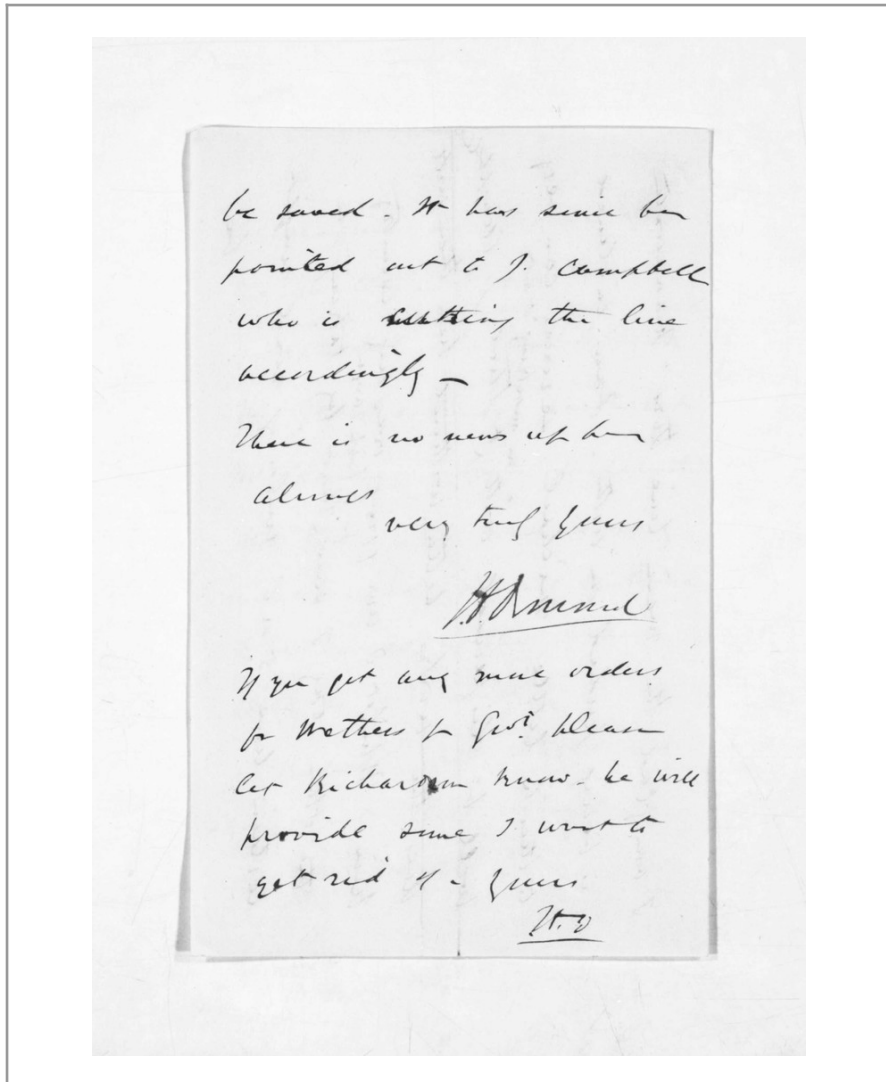 be saved. It has since been
pointed out to J. Campbell
who is cutting the line
accordingly —
There is no news up here
always
very truly yours
If you get any more orders
for Wethers for Govt. please
let Richardson know. he will
provide some I want to
get rid of - yours